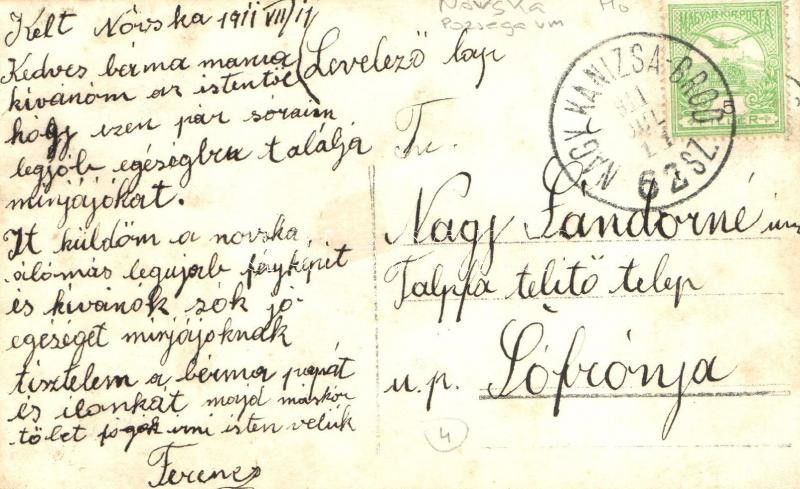 Kelt Növska 1911 VII/11
Kedves bérma mama
kívánóm az istentöl
hógy ezen pár sóraim
legjób egéségbru találja
minjájókat.
It küldöm a novska
álómás legujab fényképét
és kívánók sók jó
egéségét minjájóknak
tisztelem a bérma papát
és ilonkát majd máskor
töbet fogok irni isten velük
Ferencz
(Levelező lap
Novska
Pozsega vm
Ho
MAGYAR KIR. POSTA
5
NAGY-KANIZSA-BROD
911
JUL
11
62 SZ.
Tc.
Nagy Sandorné
Talpfa telítö telep
u.p. Sófrónja
4